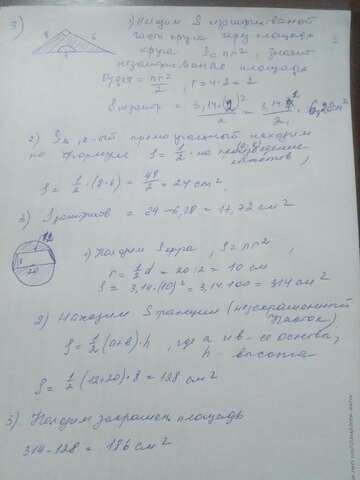 3)
8 6
4
1) Находим S незаштрихованной
части круга через площадь
круга S = πr², значит
незаштрихованная площадь
будет = πr²/2, r = 4:2 = 2
S незаштр = 3,14·(2)²/2 = 3,14·4/2 = 6,28 см²
2) S прямоугольный находим
по формуле S = 1/2 на произведение
катетов,
S = 1/2 · (8·6) = 48/2 = 24 см²
3) S заштрихов = 24 – 6,28 = 17,72 см²
12
8
20
1) Найдём S круга, S = πr²,
r = 1/2 d = 20:2 = 10 см
S = 3,14·(10)² = 3,14·100 = 314 см²
2) Находим S трапеции (незакрашенный
S = 1/2 (a+b)·h, где a и b – ее основы,
h – высота
S = 1/2 (12+20)·8 = 128 см²
3) Находим закрашен. площадь
314 – 128 = 186 см²